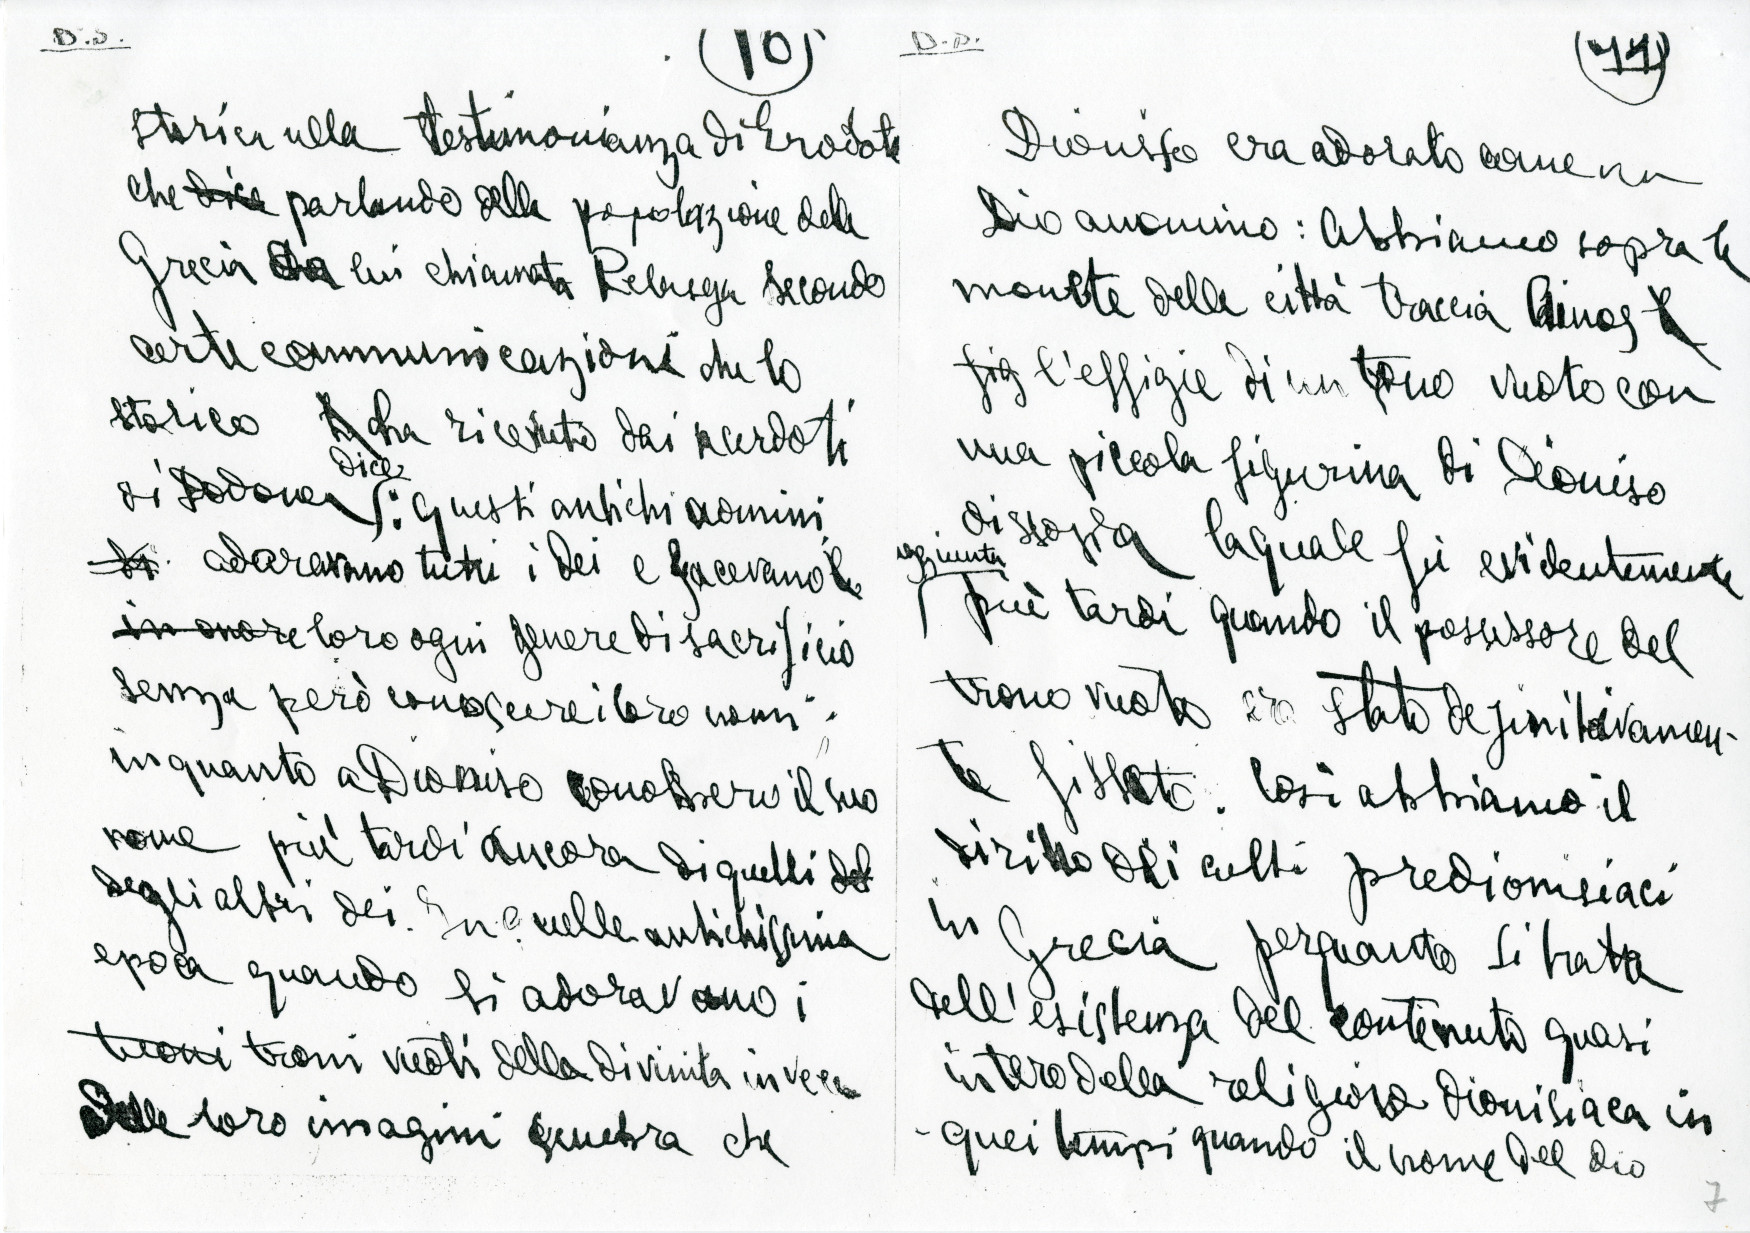 D.S.
(10)
storica nella testimonianza di Erodoto
che dice parlando della popolazione della
Grecia da lui chiamata Pelasga secondo
certe communicazioni che lo
storico ha ricevuto dai sacerdoti
di Dodona dice : questi antichi uomini
adoravano tutti i dei e facevano
in onore loro ogni genere di sacrificio
senza però conoscere i loro nomi.
in quanto a Dioniso conobbero il suo
nome più tardi ancora di quelli
degli altri dei. nella antichissima
epoca quando si adoravano i
tuoni troni vuoti della divinità invece
delle loro imagini sembra che
D.S.
(11)
Dioniso era adorato come un
Dio anonimo : Abbiamo sopra le
monete della città traccia Ainos
l'effigie di un trono vuoto con
una piccola figurina di Dioniso
di sopra la quale fu evidentemente
aggiunta
più tardi quando il possessore del
trono vuoto era stato definitivamen-
te fissato. Così abbiamo il
diritto dei culti predionisiaci
in Grecia per quanto si tratta
dell'esistenza del contenuto quasi
intero della religione dionisiaca in
quei tempi quando il nome del dio
7